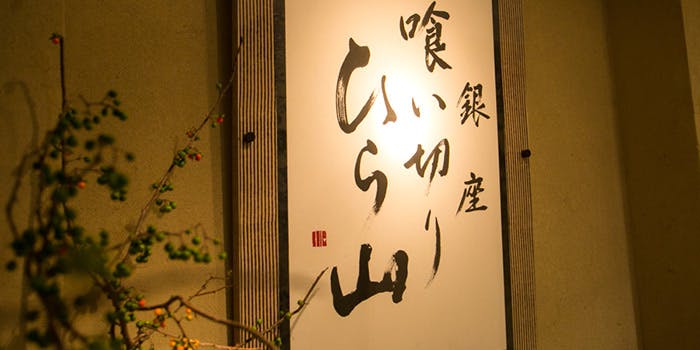 銀座
喰い切り
ひら山